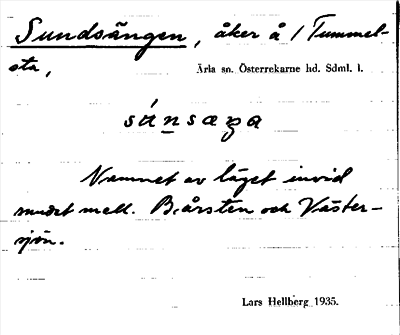 Sundsängen, åker å 1 Tummel-
sta,
Ärla sn. Österrekarne hd. Sdml. l.
súnsæŋa
Namnet av läget invid
sundet mell. B. årsten och Väster-
sjön.
Lars Hellberg 1935.